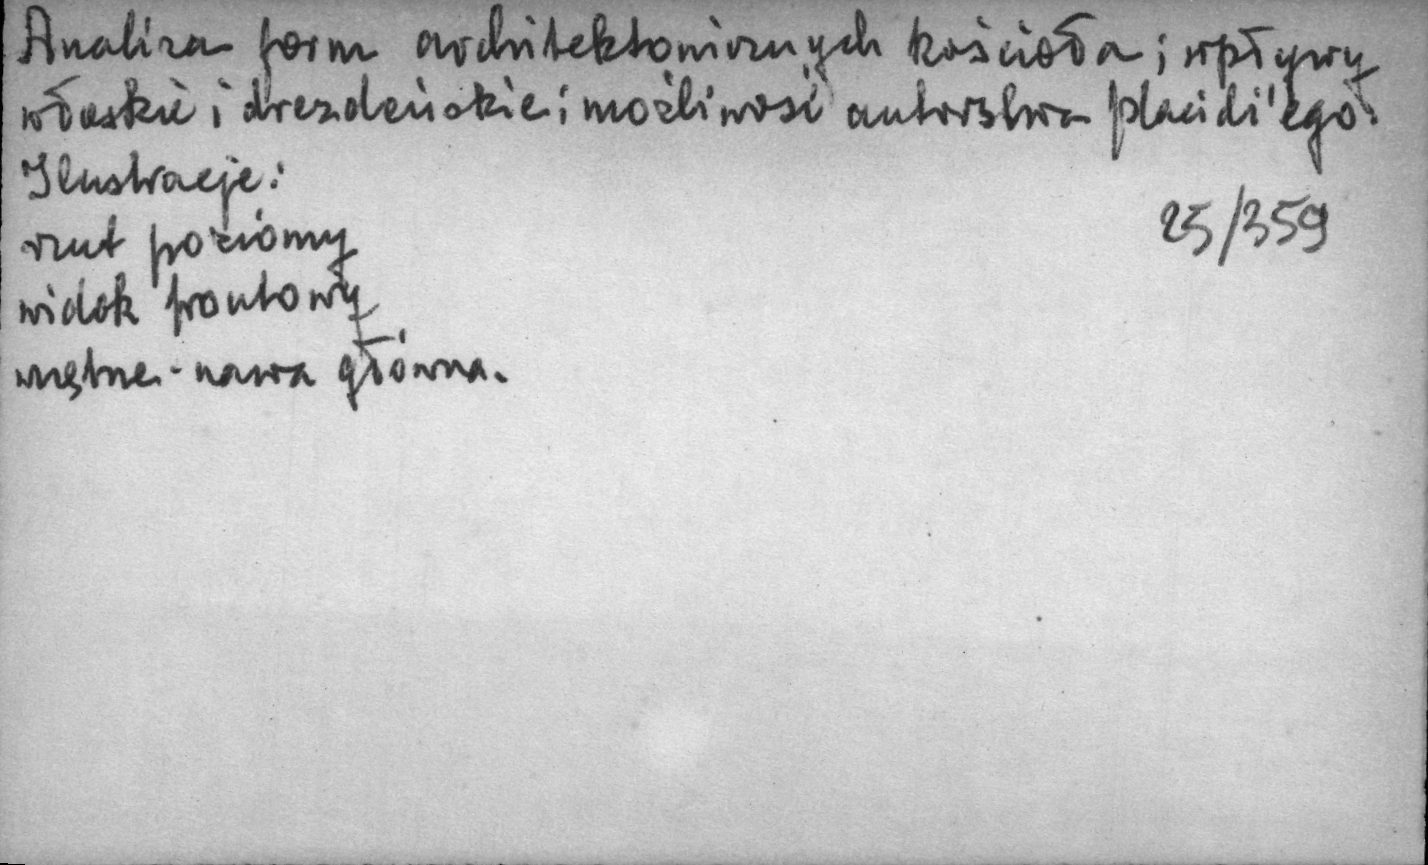 Analiza form architektonicznych kościoła; wpływy
włoskie i drezdeńskie; możliwość autorstwa Placidi'ego.
Ilustracje:
rzut poziomy
25/359
widok frontowy
wnętrze - nawa główna.